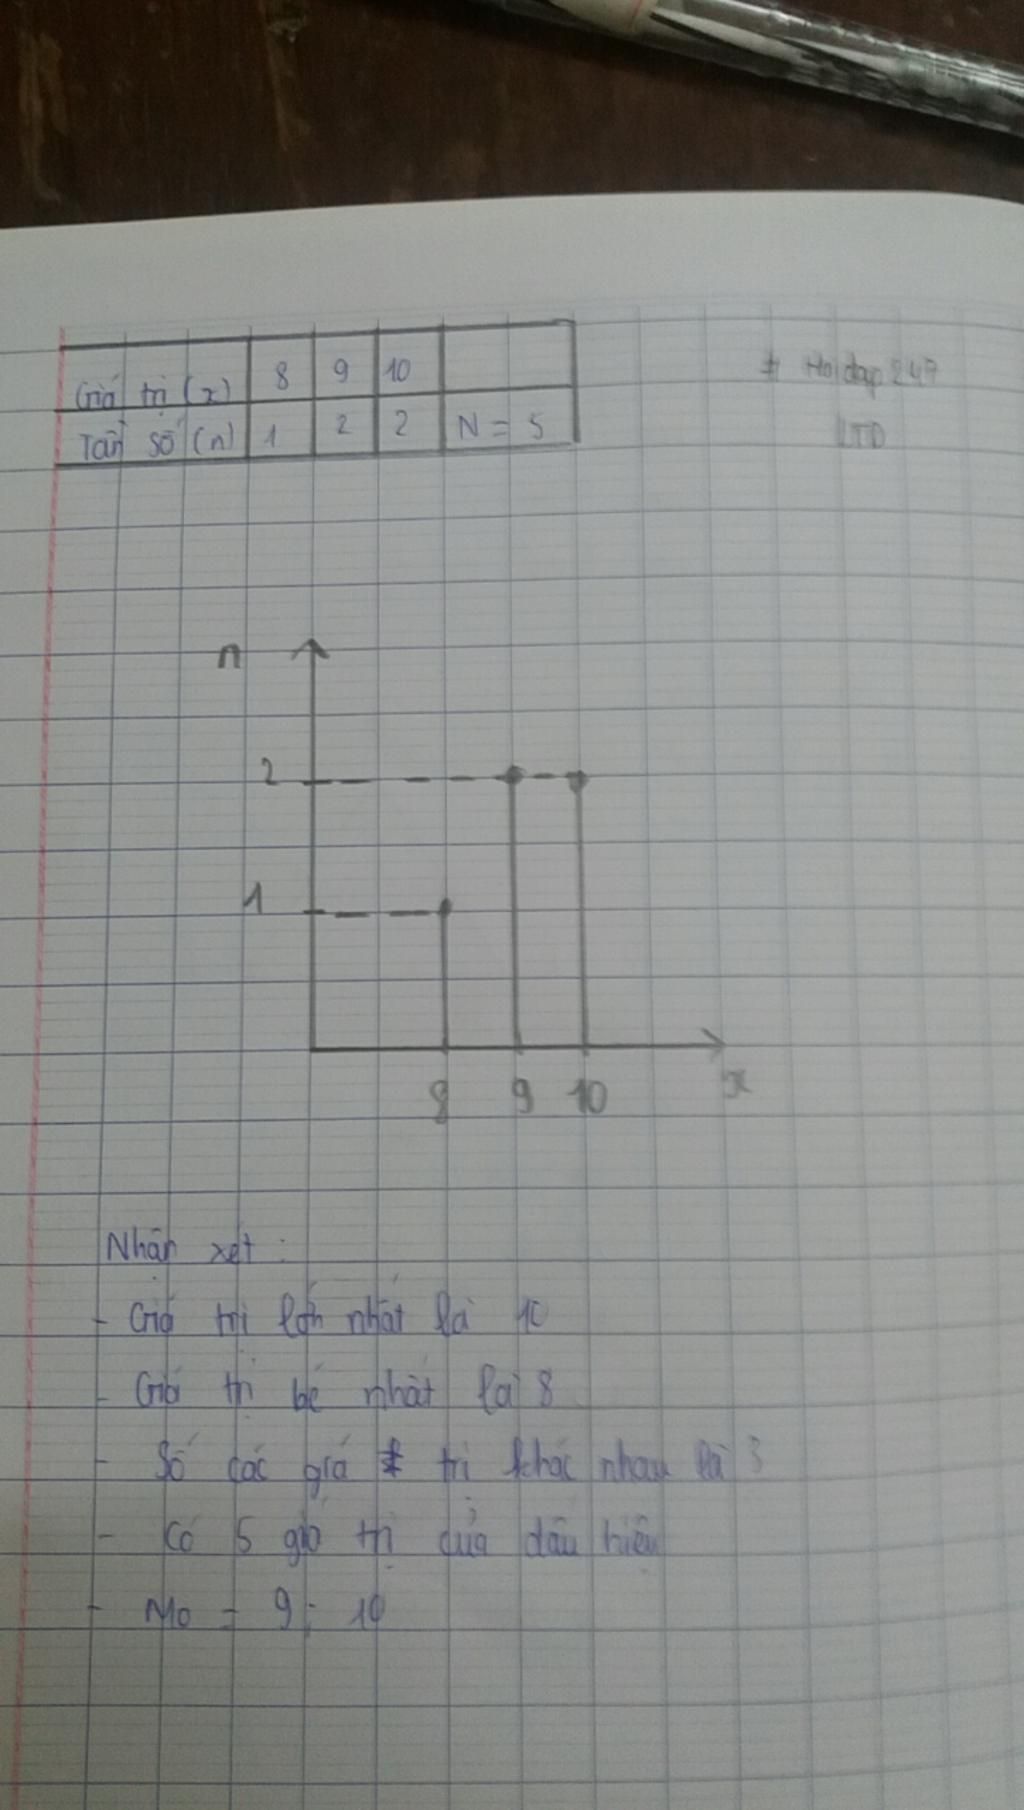 Giá trị (x) 8 9 10
Tần số (n) 1 2 2 N = 5
# Hoidap247
LTD
n
2
1
8 9 10
x
Nhận xét :
- Giá trị lớn nhất là 10
- Giá trị bé nhất là 8
- Số các giá trị khác nhau là 3
- Có 5 giá trị của dấu hiệu
- Mo = 9; 10